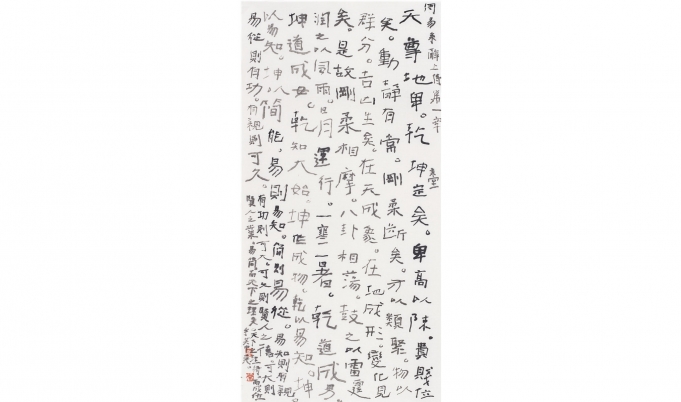 周易系辭上傳第一章
天尊地卑。乾坤定矣。卑高以陳。貴賤位
矣。動靜有常。剛柔斷矣。方以類聚。物以
群分。吉凶生矣。在天成象。在地成形。變化見
矣。是故剛柔相摩。八卦相蕩。鼓之以雷霆
潤之以風雨。日月運行。一寒一暑。乾道成男
坤道成女。乾知大始。坤作成物。乾以易知。坤
以易知。坤以簡能。易則易知。簡則易從。易知則有親
易從則有功。有親則可久。有功則可大。可久則賢人之德。可大則
賢人之業。易簡而天下之理矣。天下之理得而成位